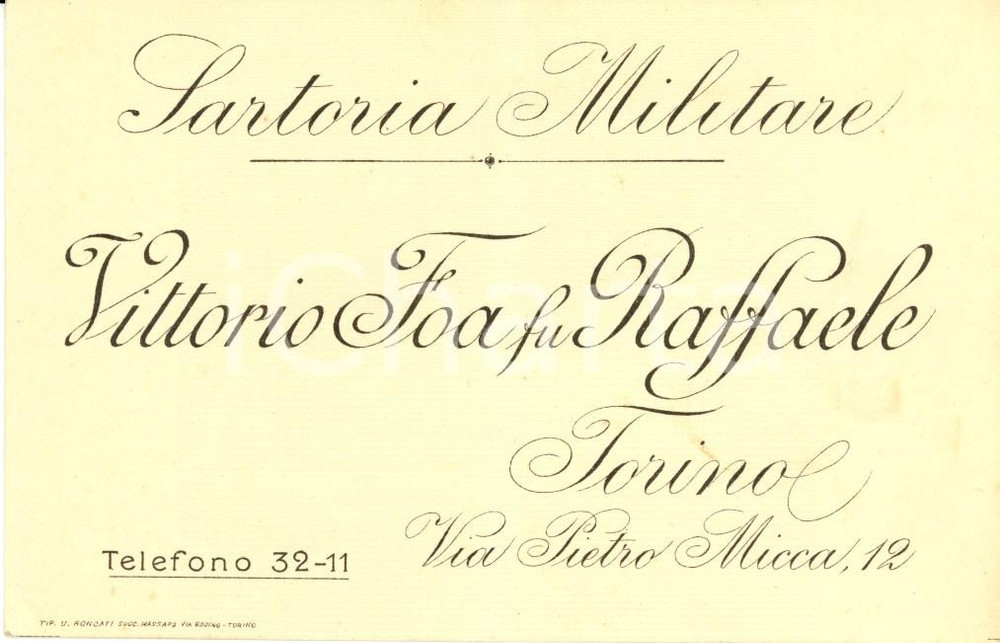 Sartoria Militare
Vittorio Foa fu Raffaele
Torino
Via Pietro Micca, 12
Telefono 32-11
TIP. U. RONCATI SUCC. MASSARO VIA BOGINO - TORINO
iCharta